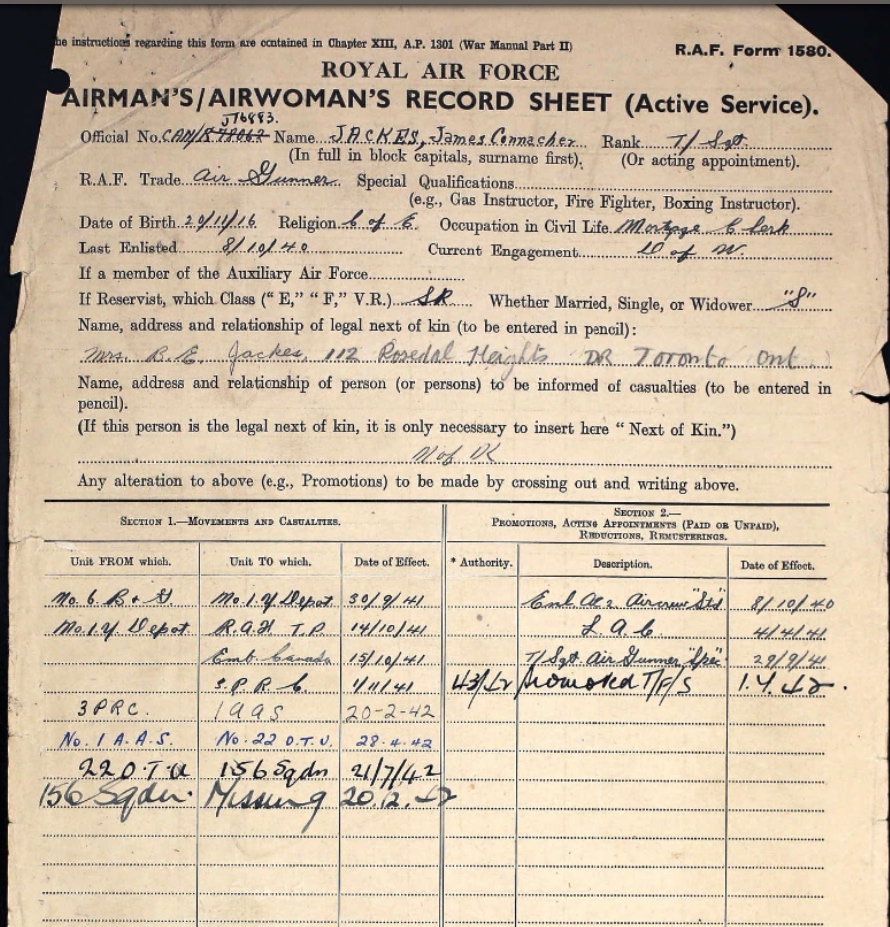 he instructions regarding this form are contained in Chapter XIII, A.P. 1301 (War Manual Part II)
R.A.F. Form 1580.
ROYAL AIR FORCE
AIRMAN'S/AIRWOMAN'S RECORD SHEET (Active Service).
J16883.
Official No. CAN/R 78062 Name JACKES, James Connacher Rank T/Sgt.
(In full in block capitals, surname first). (Or acting appointment).
R.A.F. Trade Air Gunner Special Qualifications
(e.g., Gas Instructor, Fire Fighter, Boxing Instructor).
Date of Birth 20/11/16 Religion C of E. Occupation in Civil Life Mortgage Clerk
Last Enlisted 8/10/40 Current Engagement D of W.
If a member of the Auxiliary Air Force
If Reservist, which Class ("E," "F," V.R.) SR Whether Married, Single, or Widower "S"
Name, address and relationship of legal next of kin (to be entered in pencil):
Mrs. B. E. Jackes, 112 Rosedal Heights DR Toronto Ont
Name, address and relationship of person (or persons) to be informed of casualties (to be entered in
pencil).
(If this person is the legal next of kin, it is only necessary to insert here "Next of Kin.")
N of K
Any alteration to above (e.g., Promotions) to be made by crossing out and writing above.
SECTION 1.—MOVEMENTS AND CASUALTIES.
SECTION 2.—
PROMOTIONS, ACTING APPOINTMENTS (PAID OR UNPAID),
REDUCTIONS, REMUSTERINGS.
Unit FROM which. Unit TO which. Date of Effect. * Authority. Description. Date of Effect.
No. 6 B & G. No. 1 Y Depot 30/9/41 Enl Ac2 Aircrew "Std" 8/10/40
No. 1 Y. Depot R.A.F. T.P. 14/10/41 L.A.C. 4/4/41
Emb Canada 15/10/41 T/Sgt Air Gunner "Spec" 29/9/41
3 P.R.C. 1/11/41 43/42 promoted T/F/S 1.4.42.
3 PRC. 1 AAS 20-2-42
No. 1 A.A.S. No. 22 O.T.U. 28.4.42
22 O.T.U 156 Sqdn 21/7/42
156 Sqdn. Missing 20.12.42